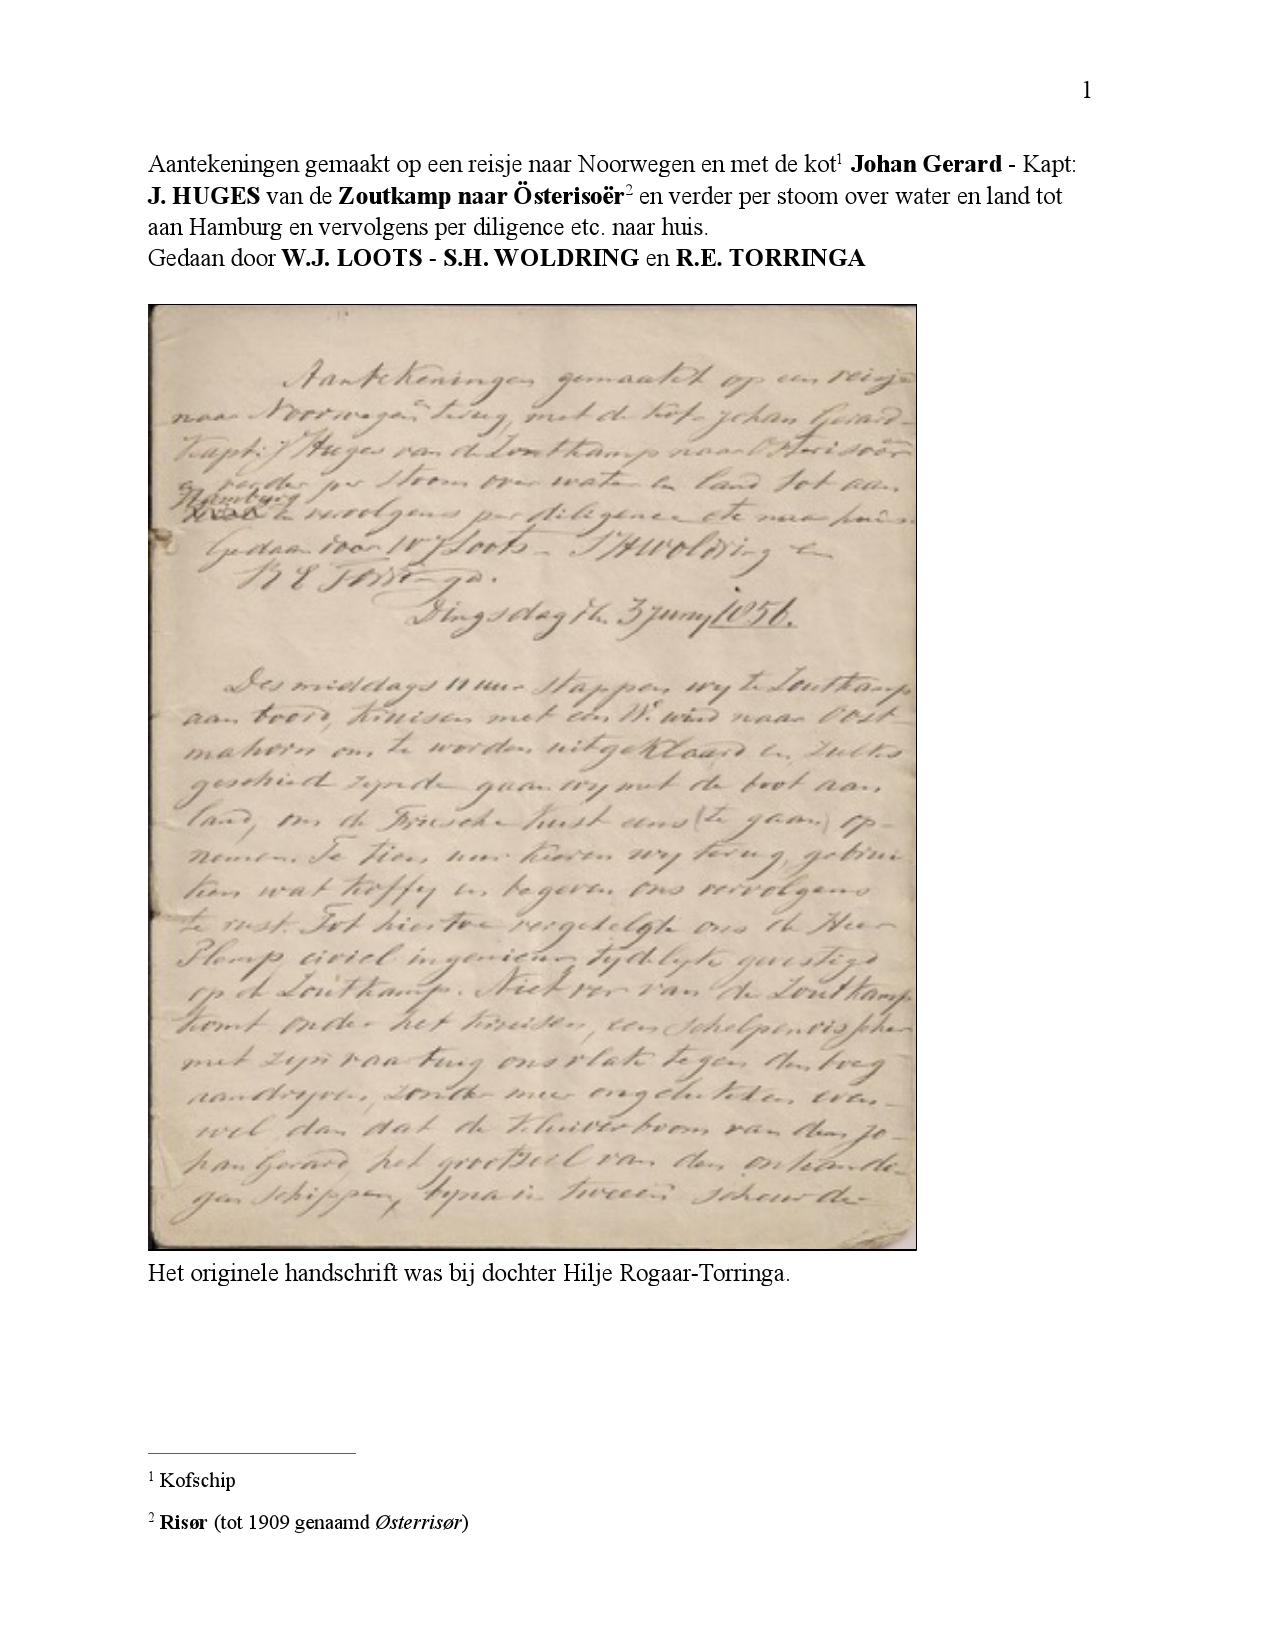 1
Aantekeningen gemaakt op een reisje naar Noorwegen en met de kot¹ Johan Gerard - Kapt:
J. HUGES van de Zoutkamp naar Österisoër² en verder per stoom over water en land tot
aan Hamburg en vervolgens per diligence etc. naar huis.
Gedaan door W.J. LOOTS - S.H. WOLDRING en R.E. TORRINGA
Aantekeningen gemaakt op een reisje
naar Noorwegen en terug, met de kof Johan Gerard
Kapt: J Huges van de Zoutkamp naar Osterisoër
en verder per stoom over water en land tot aan
Hamburg
en vervolgens per diligence etc naar huis.
Gedaan door W J Loots - S H Woldring en
R E Torringa.
Dingsdag den 3 Juny 1856.
Des middags 11 uur stappen wy te Zoutkamp
aan boord, kruisen met een W. wind naar Oost-
mahorn om te worden uitgeklaard en zulks
geschied zynde gaan wy met de boot aan
land, om de Friesche kust eens (te gaan) op-
nemen. Te tien uur keeren wy terug, gebrui
ken wat koffy en begeven ons vervolgens
te rust. Tot hiertoe vergezelgte ons de Heer
Plomp civiel ingenieur, tydelyk gevestigd
op de Zoutkamp. Niet ver van de Zoutkamp
komt onder het kruisen, een schelpenvisscher
met zyn vaartuig ons vlak tegen den boeg
aandryven, zonder meer ongelukken even-
wel dan dat de kluiverboom van den Jo-
han Gerard, het grootzeil van den onhandi-
gen schipper, byna in tweeën scheurde
Het originele handschrift was bij dochter Hilje Rogaar-Torringa.
¹ Kofschip
² Risør (tot 1909 genaamd Østerrisør)